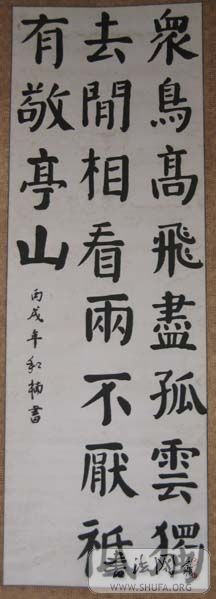 衆鳥髙飛盡孤雲獨
去閒相看兩不厭祗
有敬亭山
丙戌年楠書
書法网
WWW.SHUFA.ORG